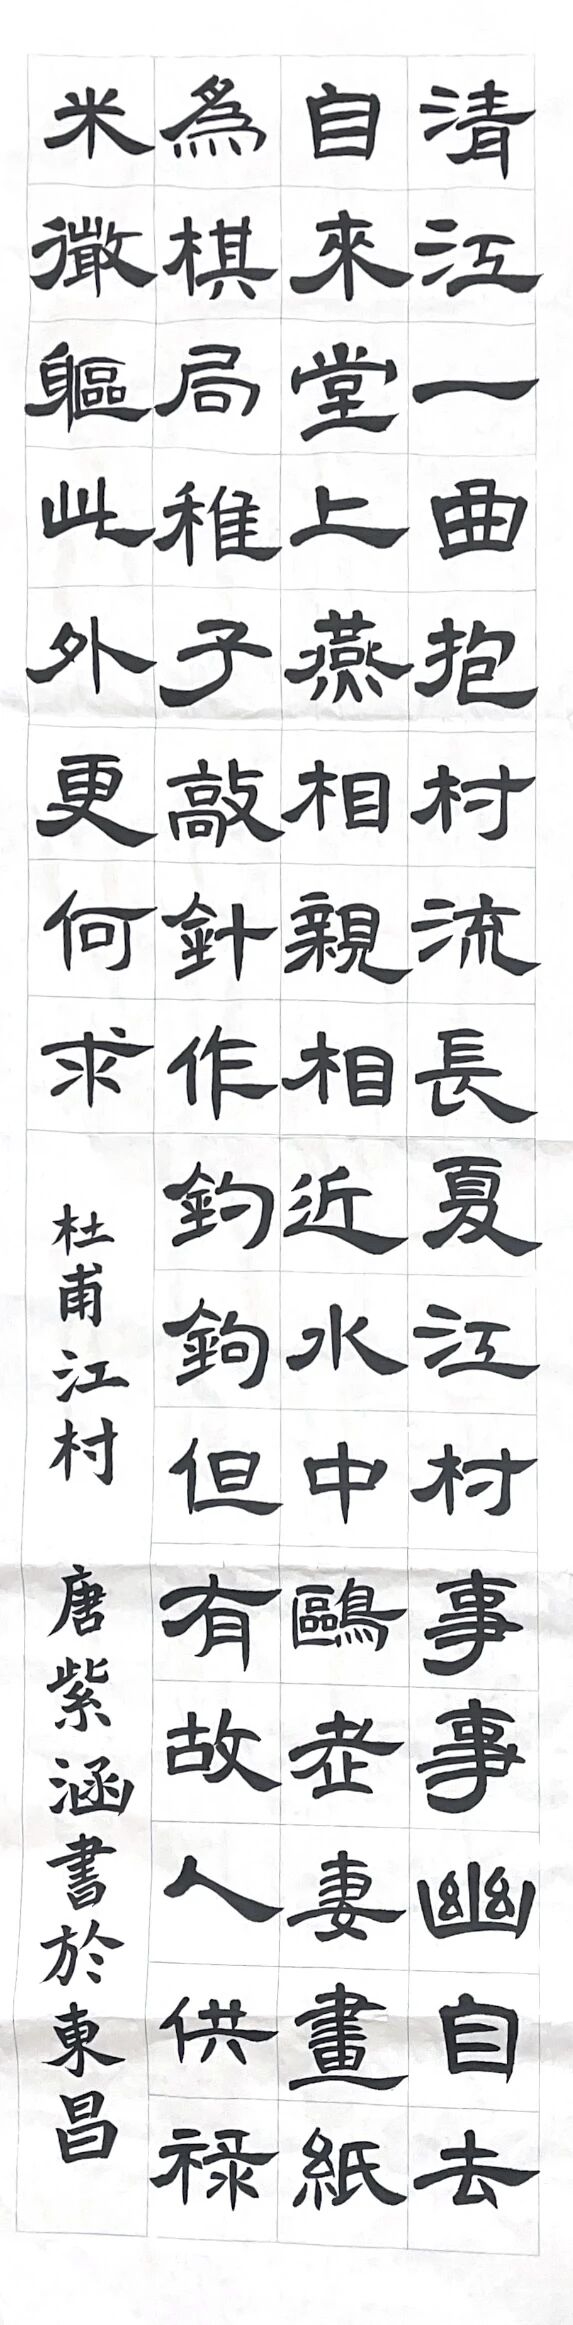 清江一曲抱村流長夏江村事事幽自去
自來堂上燕相親相近水中鷗老妻畫紙
為棋局稚子敲針作釣鉤但有故人供祿
米微軀此外更何求
杜甫江村 唐紫涵書於東昌